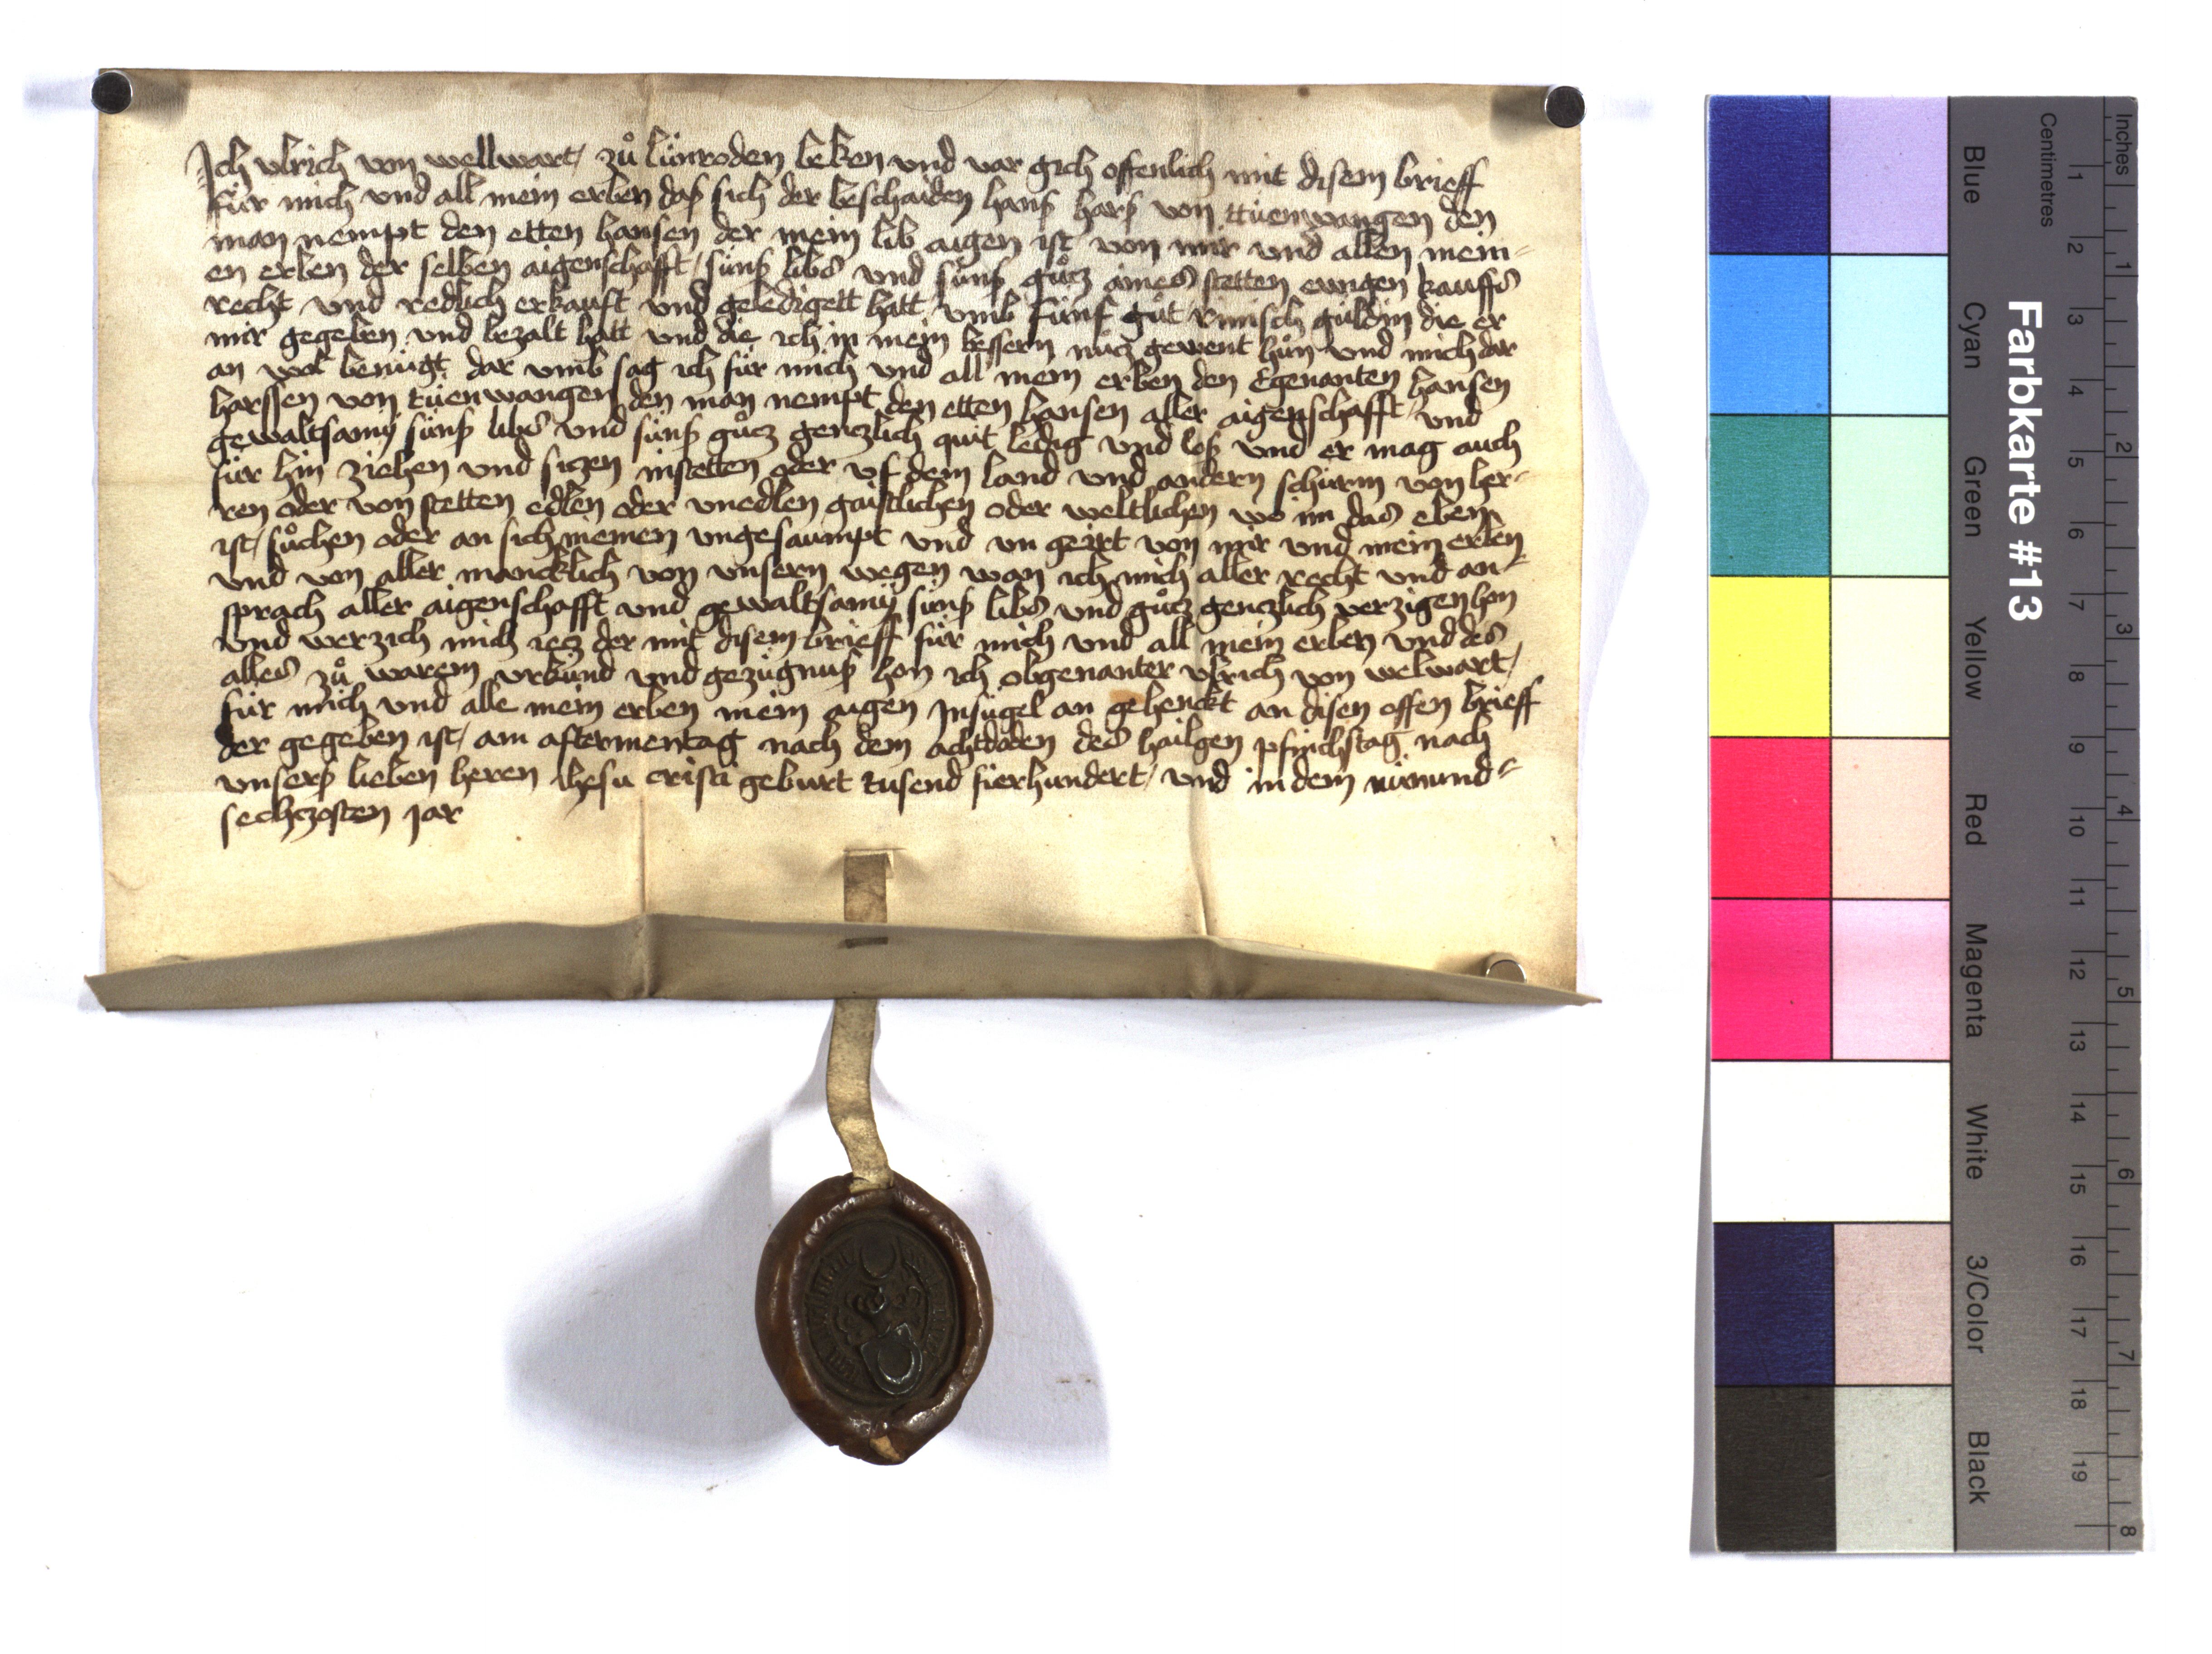 Ich vlrich von wellwart / zů lünroden beken vnd var gich offenlich mit disem brieff
für mich vnd all mein erben das sich der beschaiden hans hars von ttüenwangen den
man nempt den etten hansen der mein lib aigen ist von mir vnd allen mein-
en erben der selben aigenschafft / sünß libs vnd sünß gůcz aines stetten ewigen kauffs
recht vnd redlich erkauft vnd geledigett hatt vmb fünf gůt rinisch guldin die er
mir gegeben vnd bezalt hatt vnd die ich in mein bessern nucz gewent hon vnd mich dar
an wol benügt dar vmb sag ich für mich vnd all mein erben den Egenanten hansen
harssen von tüenwangen den man nempt den etten hansen aller aigenschafft / vnd
gewaltsamy sünß libs vnd sünß gůcz genczlich quit ledig vnd loß vnd er mag auch
für hin ziehen vnd siczen in stetten oder vf dem land vnd andern schirm von her-
ren oder von stetten edlen oder vnedlen gaistlichen oder weltlichen wo im das eben
ist / sůchen oder an sich niemen vngesaumpt vnd vn geirt von mir vnd mein erben
vnd von aller mancklich von vnsern wegen wan ich mich aller recht vnd an-
sprach aller aigenschafft vnd gewaltsamy sünß libs vnd gůcz genczlich verzigen hon
vnd verzich mich iecz der mit disem brieff für mich vnd all mein erben vnd des
alles zů warem vrkünd vnd gezügnuß hon ich obgenanter vlrich von welwart /
für mich vnd alle mein erben mein aigen Insügel an gehenckt an disen offen brieff
der gegeben ist / am aftermentag nach dem achtdoden des hailgen pfinchstag nach
vnsers lieben heren ihesu cristi geburt tusend fierhundert / vnd in dem nünund-
sechzosten jar
Farbkarte #13
Centimetres
Inches
Blue
Cyan
Green
Yellow
Red
Magenta
White
3/Color
Black
1 2 3 4 5 6 7 8 9 10 11 12 13 14 15 16 17 18 19
1 2 3 4 5 6 7 8